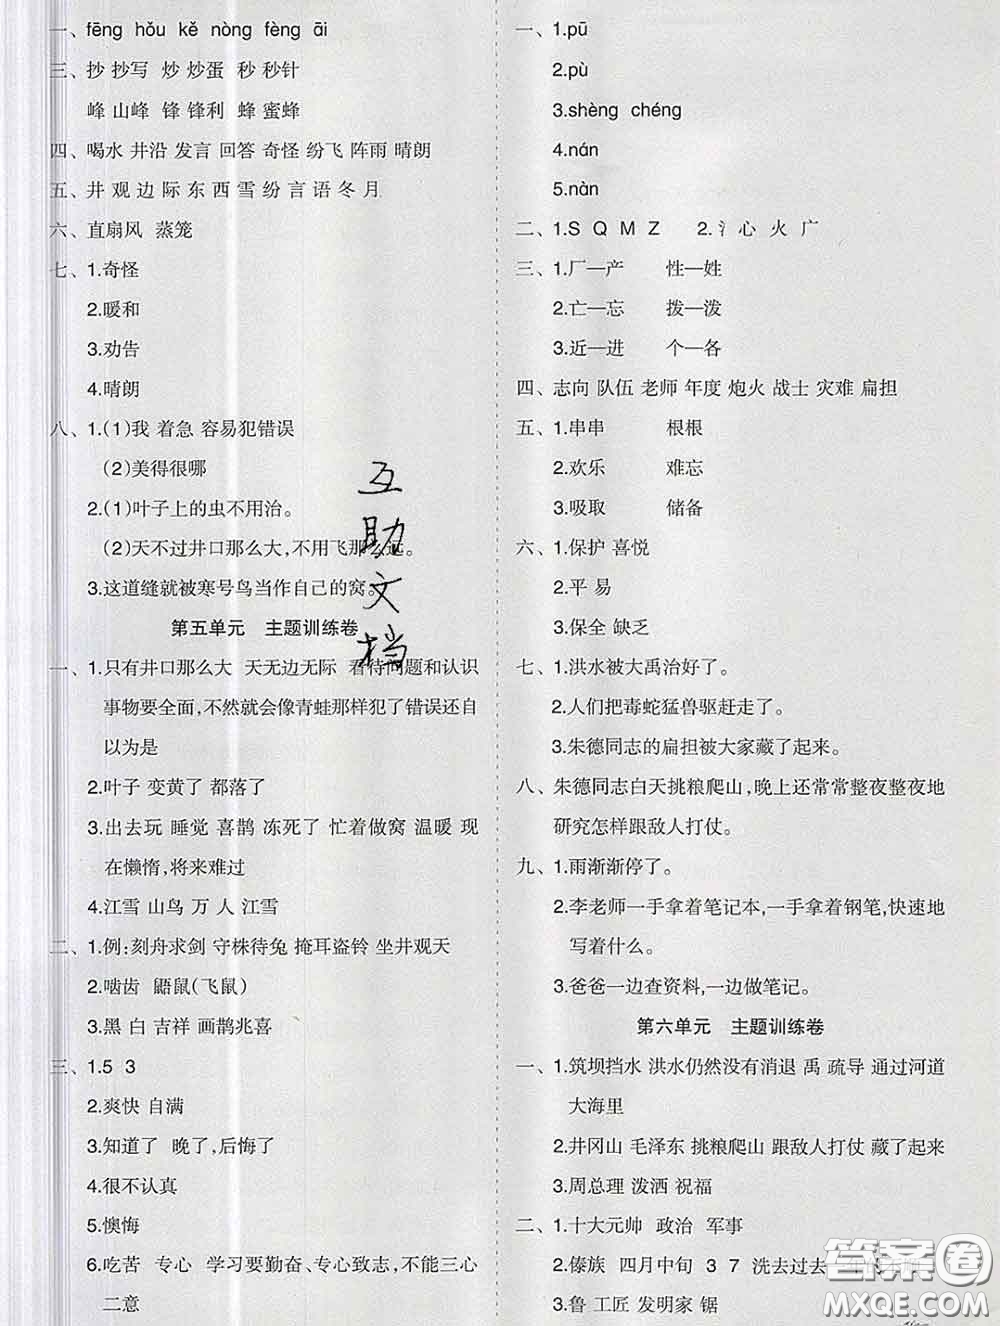 一、fēng hǒu kě nòng fèng āi
三、抄 抄写 炒 炒蛋 秒 秒针
峰 山峰 锋 锋利 蜂 蜜蜂
四、喝水 井沿 发言 回答 奇怪 纷飞 阵雨 晴朗
五、井 观 边 际 东 西 雪 纷 言 语 冬 月
六、直扇风 蒸笼
七、1.奇怪
2.暖和
3.劝告
4.晴朗
八、1.(1)我 着急 容易犯错误
(2)美得很哪
2.(1)叶子上的虫不用治。
(2)天不过井口那么大,不用飞那么远。
3.这道缝就被寒号鸟当作自己的窝。
第五单元 主题训练卷
一、1.只有井口那么大 天无边无际 看待问题和认识
事物要全面,不然就会像青蛙那样犯了错误还自
以为是
2.叶子 变黄了 都落了
3.出去玩 睡觉 喜鹊 冻死了 忙着做窝 温暖 现
在懒惰,将来难过
4.江雪 山鸟 万 人 江雪
二、1.例:刻舟求剑 守株待兔 掩耳盗铃 坐井观天
2.啮齿 鼯鼠(飞鼠)
3.黑 白 吉祥 画鹊兆喜
三、1.5 3
2.爽快 自满
3.知道了 晚了,后悔了
4.很不认真
5.懊悔
6.吃苦 专心 学习要勤奋、专心致志,不能三心
二意
互助文档
一、1.pū
2.pù
3.shèng chéng
4.nán
5.nàn
二、1.S Q M Z 2.氵 心 火 广
三、1.厂—产 性—姓
2.亡—忘 拨—泼
3.近—进 个—各
四、志向 队伍 老师 年度 炮火 战士 灾难 扁担
五、1.串串 根根
2.欢乐 难忘
3.吸取 储备
六、1.保护 喜悦
2.平 易
3.保全 缺乏
七、1.洪水被大禹治好了。
2.人们把毒蛇猛兽驱赶走了。
3.朱德同志的扁担被大家藏了起来。
八、朱德同志白天挑粮爬山,晚上还常常整夜整夜地
研究怎样跟敌人打仗。
九、1.雨渐渐停了。
2.李老师一手拿着笔记本,一手拿着钢笔,快速地
写着什么。
3.爸爸一边查资料,一边做笔记。
第六单元 主题训练卷
一、1.筑坝挡水 洪水仍然没有消退 禹 疏导 通过河道
大海里
2.井冈山 毛泽东 挑粮爬山 跟敌人打仗 藏了起来
3.周总理 泼洒 祝福
二、1.十大元帅 政治 军事
2.傣族 四月中旬 3 7 洗去过去一年的
3.鲁 工匠 发明家 锯
答案圈
MXQE.COM